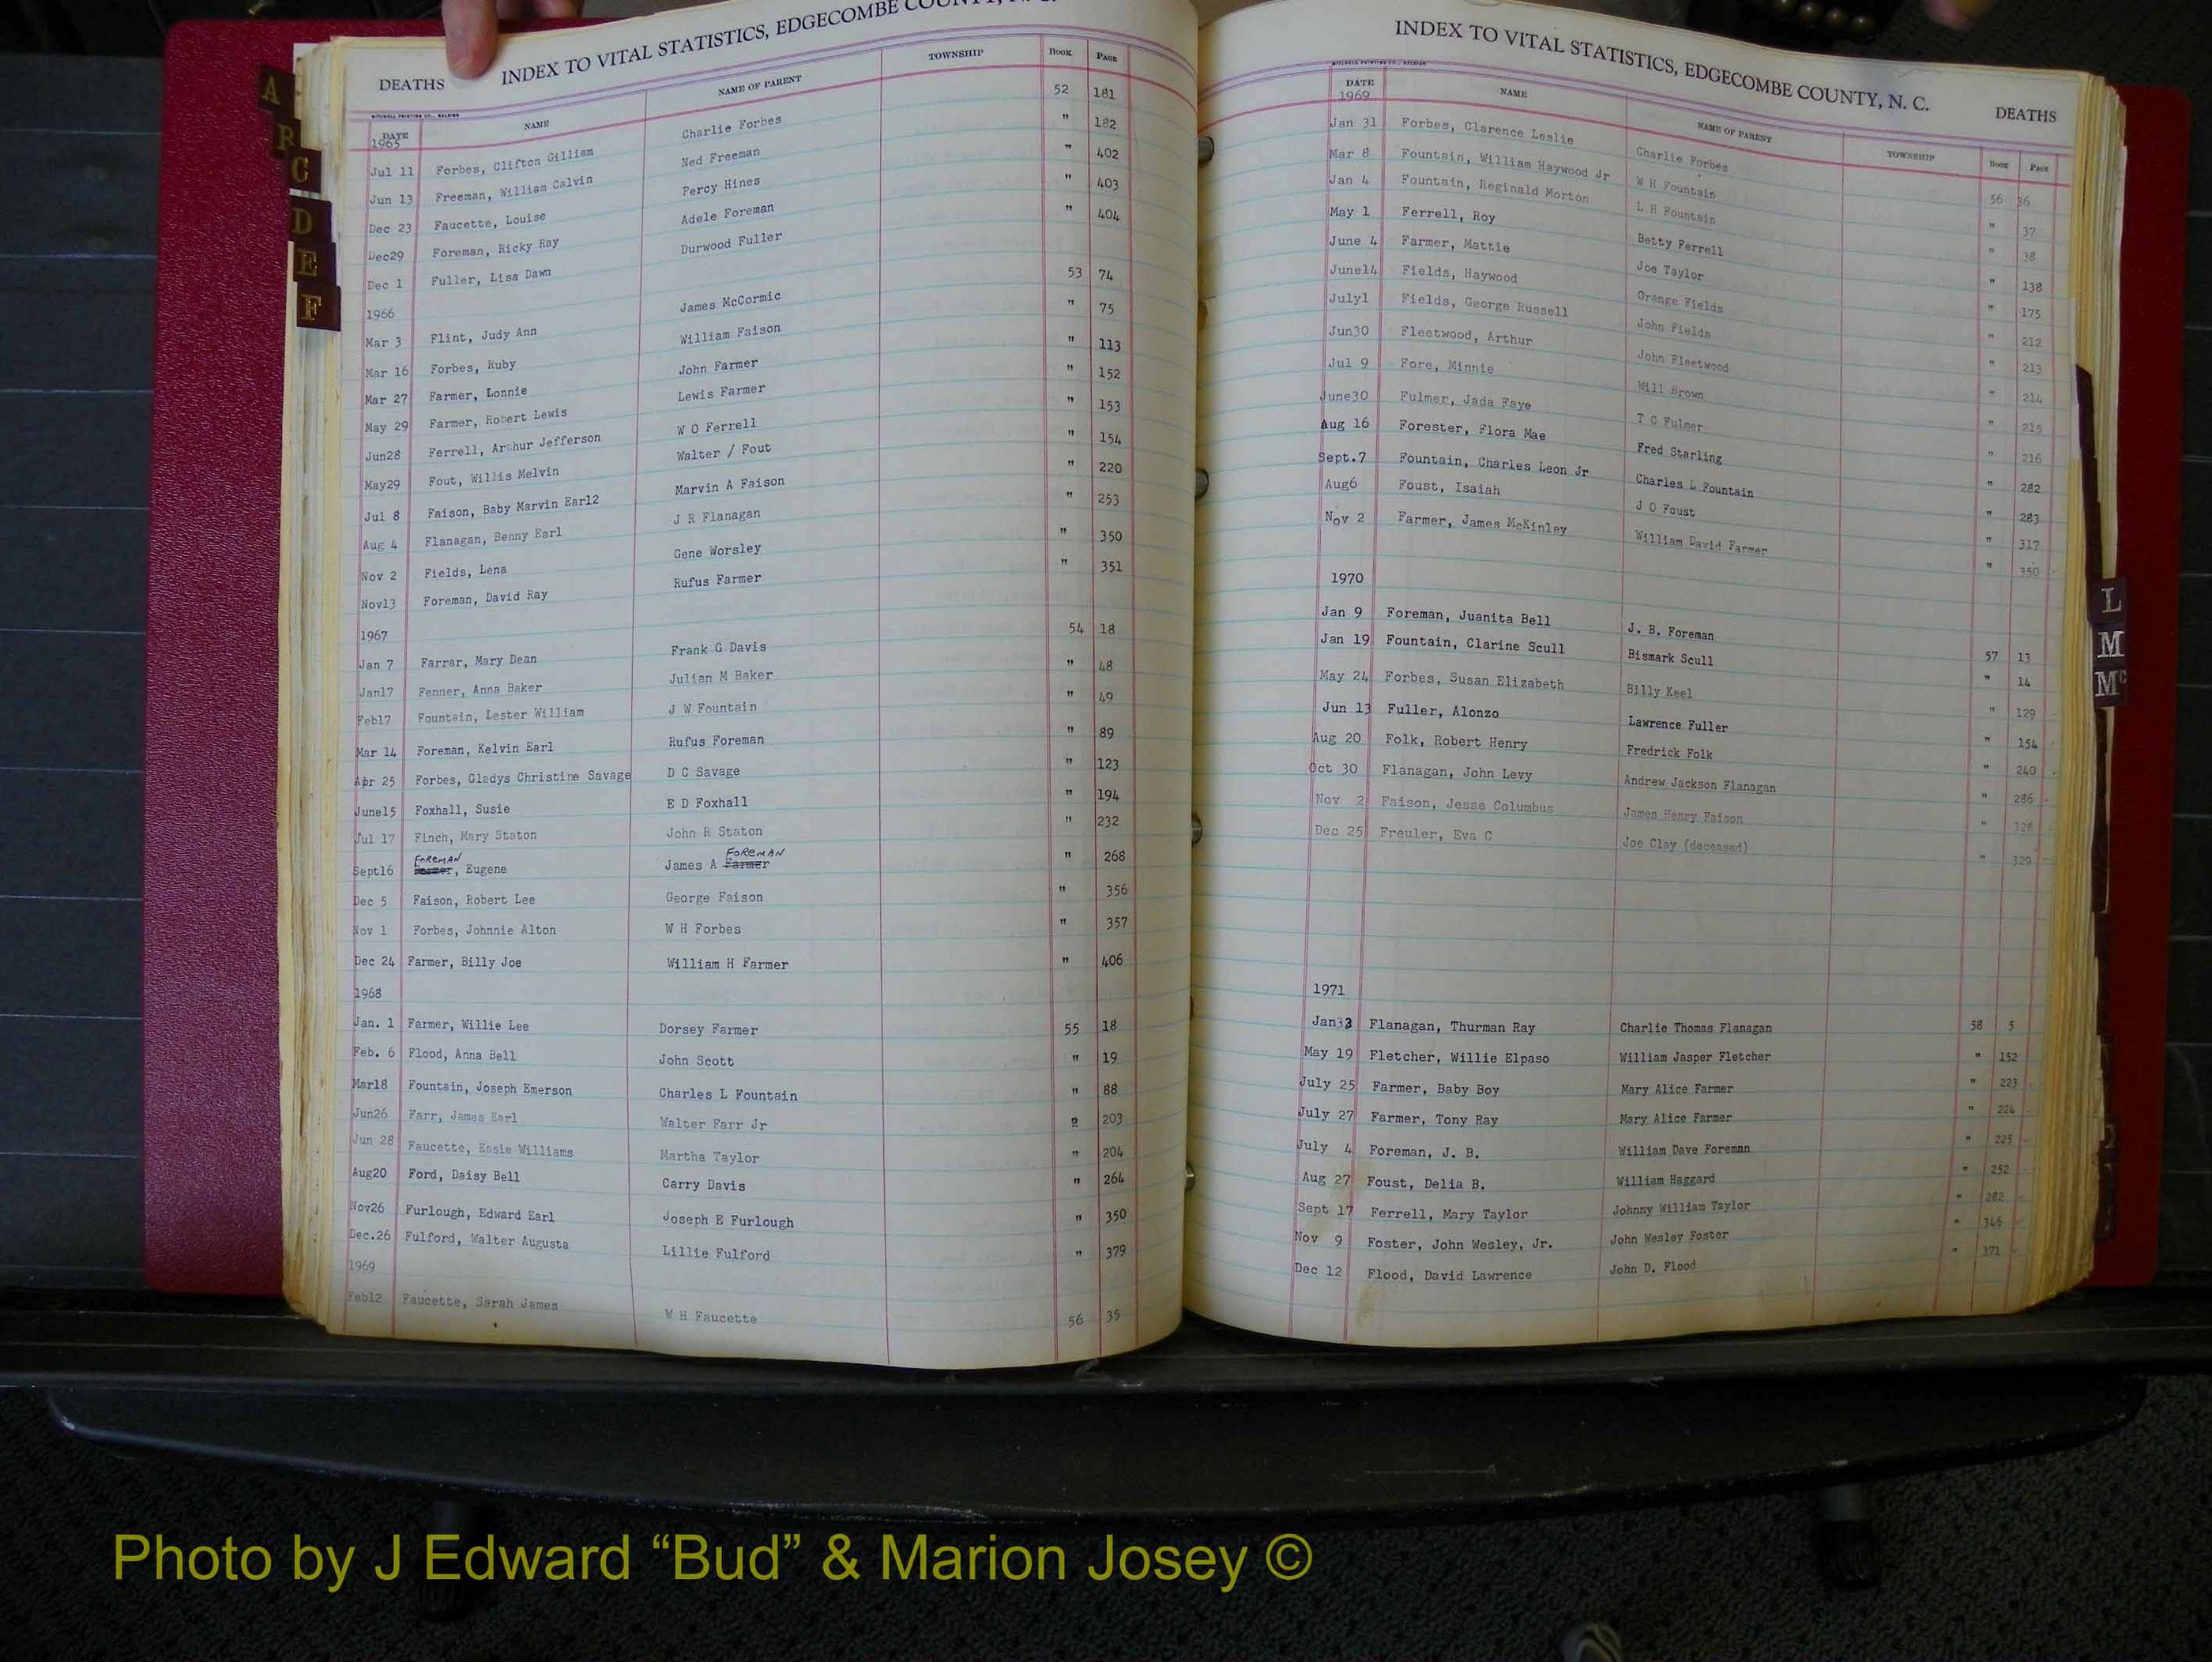 DEATHS INDEX TO VITAL STATISTICS, EDGECOMBE COUNTY, N. C.
MITCHELL PRINTING CO., RALEIGH
DATE NAME NAME OF PARENT TOWNSHIP BOOK PAGE
1965
Jul 11 Forbes, Clifton Gilliam Charlie Forbes 52 181
Jun 13 Freeman, William Calvin Ned Freeman " 182
Dec 23 Faucette, Louise Percy Hines " 402
Dec29 Foreman, Ricky Ray Adele Foreman " 403
Dec 1 Fuller, Lisa Dawn Durwood Fuller " 404
1966
Mar 3 Flint, Judy Ann James McCormic 53 74
Mar 16 Forbes, Ruby William Faison " 75
Mar 27 Farmer, Lonnie John Farmer " 113
May 29 Farmer, Robert Lewis Lewis Farmer " 152
Jun28 Ferrell, Arthur Jefferson W O Ferrell " 153
May29 Fout, Willis Melvin Walter / Fout " 154
Jul 8 Faison, Baby Marvin Earl2 Marvin A Faison " 220
Aug 4 Flanagan, Benny Earl J R Flanagan " 253
Nov 2 Fields, Lena Gene Worsley " 350
Nov13 Foreman, David Ray Rufus Farmer " 351
1967
Jan 7 Farrar, Mary Dean Frank G Davis 54 18
Jan17 Fenner, Anna Baker Julian M Baker " 48
Feb17 Fountain, Lester William J W Fountain " 49
Mar 14 Foreman, Kelvin Earl Rufus Foreman " 89
Apr 25 Forbes, Gladys Christine Savage D C Savage " 123
June15 Foxhall, Susie E D Foxhall " 194
Jul 17 Finch, Mary Staton John R Staton " 232
FOREMAN FOREMAN
Sept16 Farmer, Eugene James A Farmer " 268
Dec 5 Faison, Robert Lee George Faison " 356
Nov 1 Forbes, Johnnie Alton W H Forbes " 357
Dec 24 Farmer, Billy Joe William H Farmer " 406
1968
Jan. 1 Farmer, Willie Lee Dorsey Farmer 55 18
Feb. 6 Flood, Anna Bell John Scott " 19
Mar18 Fountain, Joseph Emerson Charles L Fountain " 88
Jun26 Farr, James Earl Walter Farr Jr 203
Jun 28 Faucette, Essie Williams Martha Taylor " 204
Aug20 Ford, Daisy Bell Carry Davis " 264
Nov26 Furlough, Edward Earl Joseph E Furlough " 350
Dec.26 Fulford, Walter Augusta Lillie Fulford " 379
1969
Feb12 Faucette, Sarah James W H Faucette 56 35
INDEX TO VITAL STATISTICS, EDGECOMBE COUNTY, N. C. DEATHS
MITCHELL PRINTING CO., RALEIGH
DATE NAME NAME OF PARENT TOWNSHIP BOOK PAGE
1969
Jan 31 Forbes, Clarence Leslie Charlie Forbes 56 36
Mar 8 Fountain, William Haywood Jr W H Fountain " 37
Jan 4 Fountain, Reginald Morton L H Fountain " 38
May 1 Ferrell, Roy Betty Ferrell " 138
June 4 Farmer, Mattie Joe Taylor " 175
June14 Fields, Haywood Orange Fields " 212
July1 Fields, George Russell John Fields " 213
Jun30 Fleetwood, Arthur John Fleetwood " 214
Jul 9 Fore, Minnie Will Brown " 215
June30 Fulmer, Jada Faye T C Fulmer " 216
Aug 16 Forester, Flora Mae Fred Starling " 282
Sept.7 Fountain, Charles Leon Jr Charles L Fountain " 283
Aug6 Foust, Isaiah J O Foust " 317
Nov 2 Farmer, James McKinley William David Farmer " 350
1970
Jan 9 Foreman, Juanita Bell J. B. Foreman 57 13
Jan 19 Fountain, Clarine Scull Bismark Scull " 14
May 24 Forbes, Susan Elizabeth Billy Keel " 129
Jun 13 Fuller, Alonzo Lawrence Fuller " 154
Aug 20 Folk, Robert Henry Fredrick Folk " 240
Oct 30 Flanagan, John Levy Andrew Jackson Flanagan " 286
Nov 2 Faison, Jesse Columbus James Henry Faison " 328
Dec 25 Freuler, Eva C Joe Clay (deceased) " 329
1971
Flanagan, Thurman Ray Charlie Thomas Flanagan 58 5
May 19 Fletcher, Willie Elpaso William Jasper Fletcher " 152
July 25 Farmer, Baby Boy Mary Alice Farmer " 223
July 27 Farmer, Tony Ray Mary Alice Farmer " 224
July 4 Foreman, J. B. William Dave Foreman " 225
Aug 27 Foust, Delia B. William Haggard " 252
Sept 17 Ferrell, Mary Taylor Johnny William Taylor " 282
Nov 9 Foster, John Wesley, Jr. John Wesley Foster " 346
Dec 12 Flood, David Lawrence John D. Flood " 371
A
C
D
E
F
L
M
Mc
Photo by J Edward “Bud” & Marion Josey ©